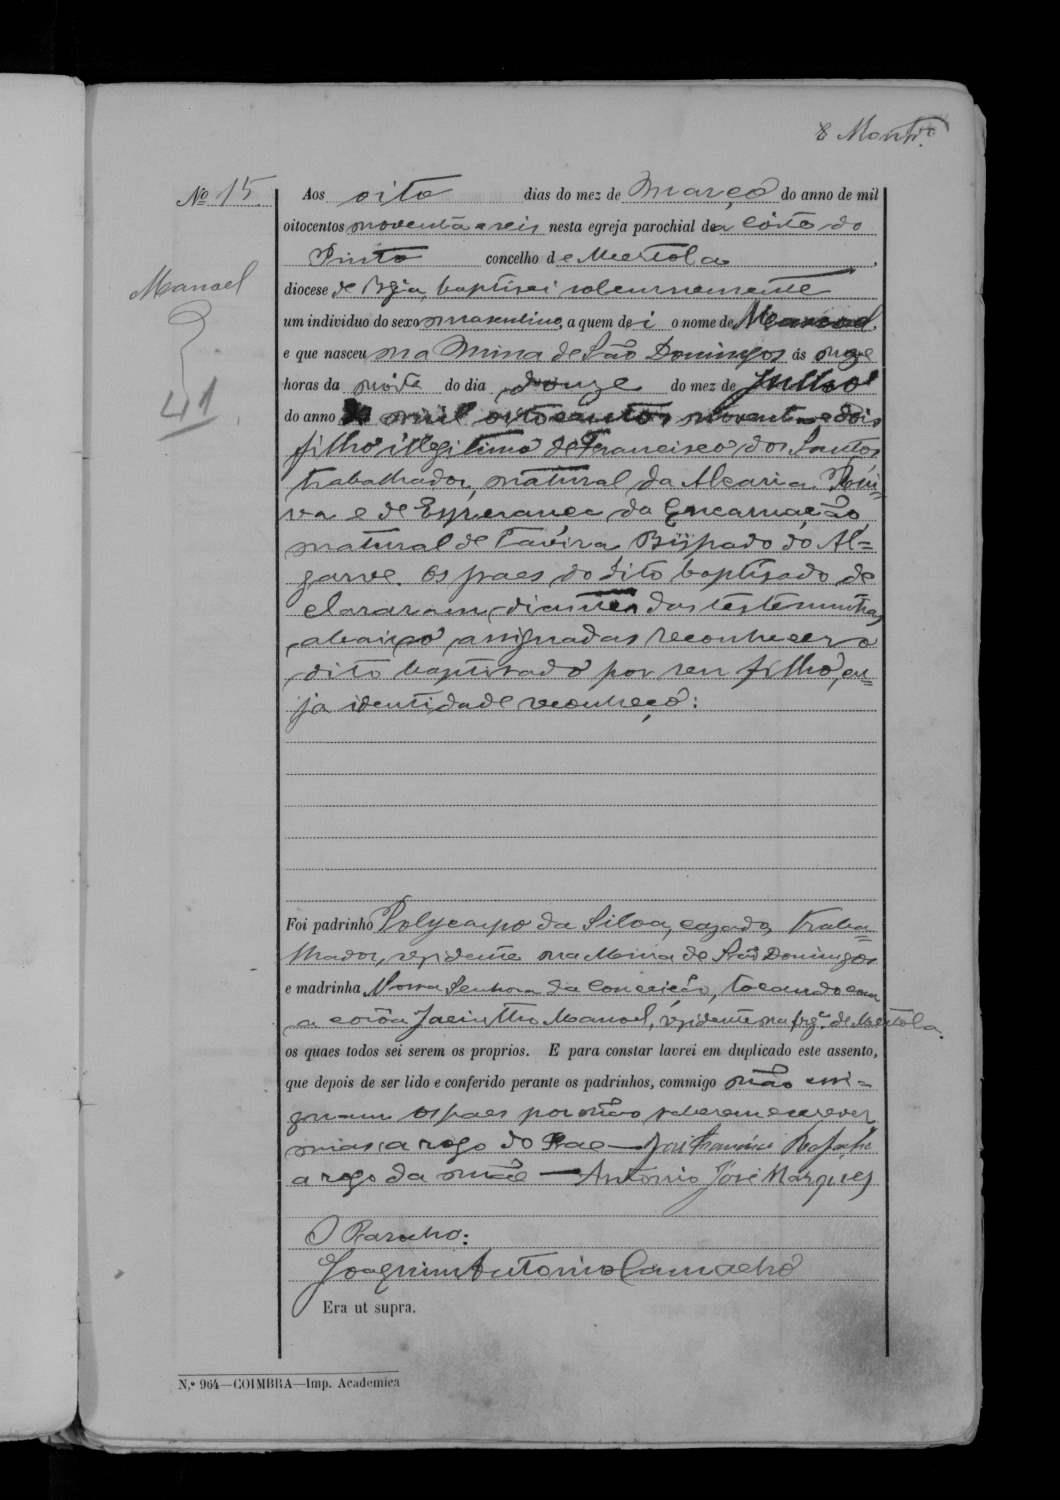 8 Montr.º
Nº 15.
Manoel
41
Aos oito dias do mez de Março do anno de mil
oitocentos noventa e seis nesta egreja parochial da Côrte do
Pinto concelho de Mertola,
diocese de Beja, baptisei solemnemente
um individuo do sexo masculino, a quem dei o nome de Manoel.
e que nasceu na Mina de São Domingos ás onze
horas da noite do dia douze do mez de Julho
do anno de mil oitocentos noventa e dois
filho illegitimo de Francisco dos Santos
trabalhador, natural da Alcaria Rui-
va e de Esperança da Encarnação,
natural de Tavira Bispado do Al=
garve. Os paes do dito baptisado de
clararam, diante das testemunhas,
abaixo assignadas reconhecer o
dito baptisado por seu filho, cu=
ja identidade reconheço:
Foi padrinho Polycarpo da Silva, cazado, traba=
lhador, residente na Mina de São Domingos
e madrinha Nossa Senhora da Conceição, tocando com
a corôa Jacintho Manoel, residente na frg.ª de Mertola.
os quaes todos sei serem os proprios. E para constar lavrei em duplicado este assento,
que depois de ser lido e conferido perante os padrinhos, commigo não assi=
gnam os paes por não saberem escrever
mas a rogo do Pae — José Francisco
a rogo da mãe — Antonio José Marques
O Parocho:
Joaquim Antonio Camacho
Era ut supra.
N.º 964—COIMBRA—Imp. Academica